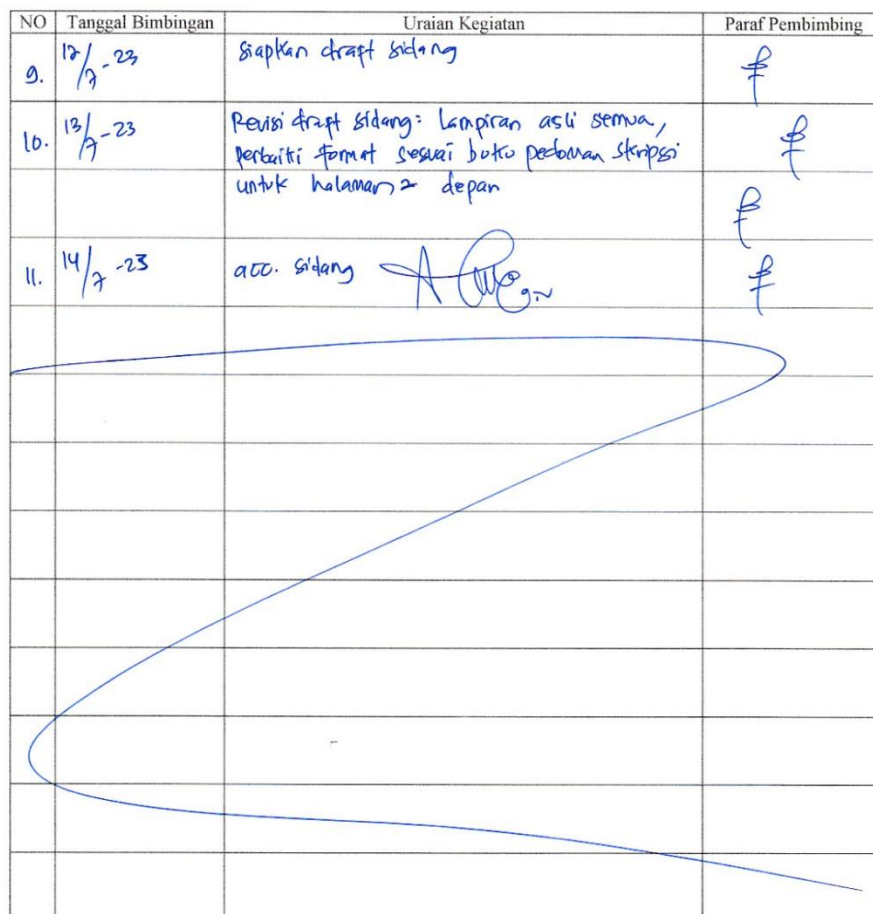 NO Tanggal Bimbingan Uraian Kegiatan Paraf Pembimbing
9. 12/7-23 siapkan draft sidang
10. 13/7-23 Revisi draft sidang: Lampiran asli semua,
perbaiki format sesuai buku pedoman skripsi
untuk halaman2 depan
11. 14/7-23 acc. sidang